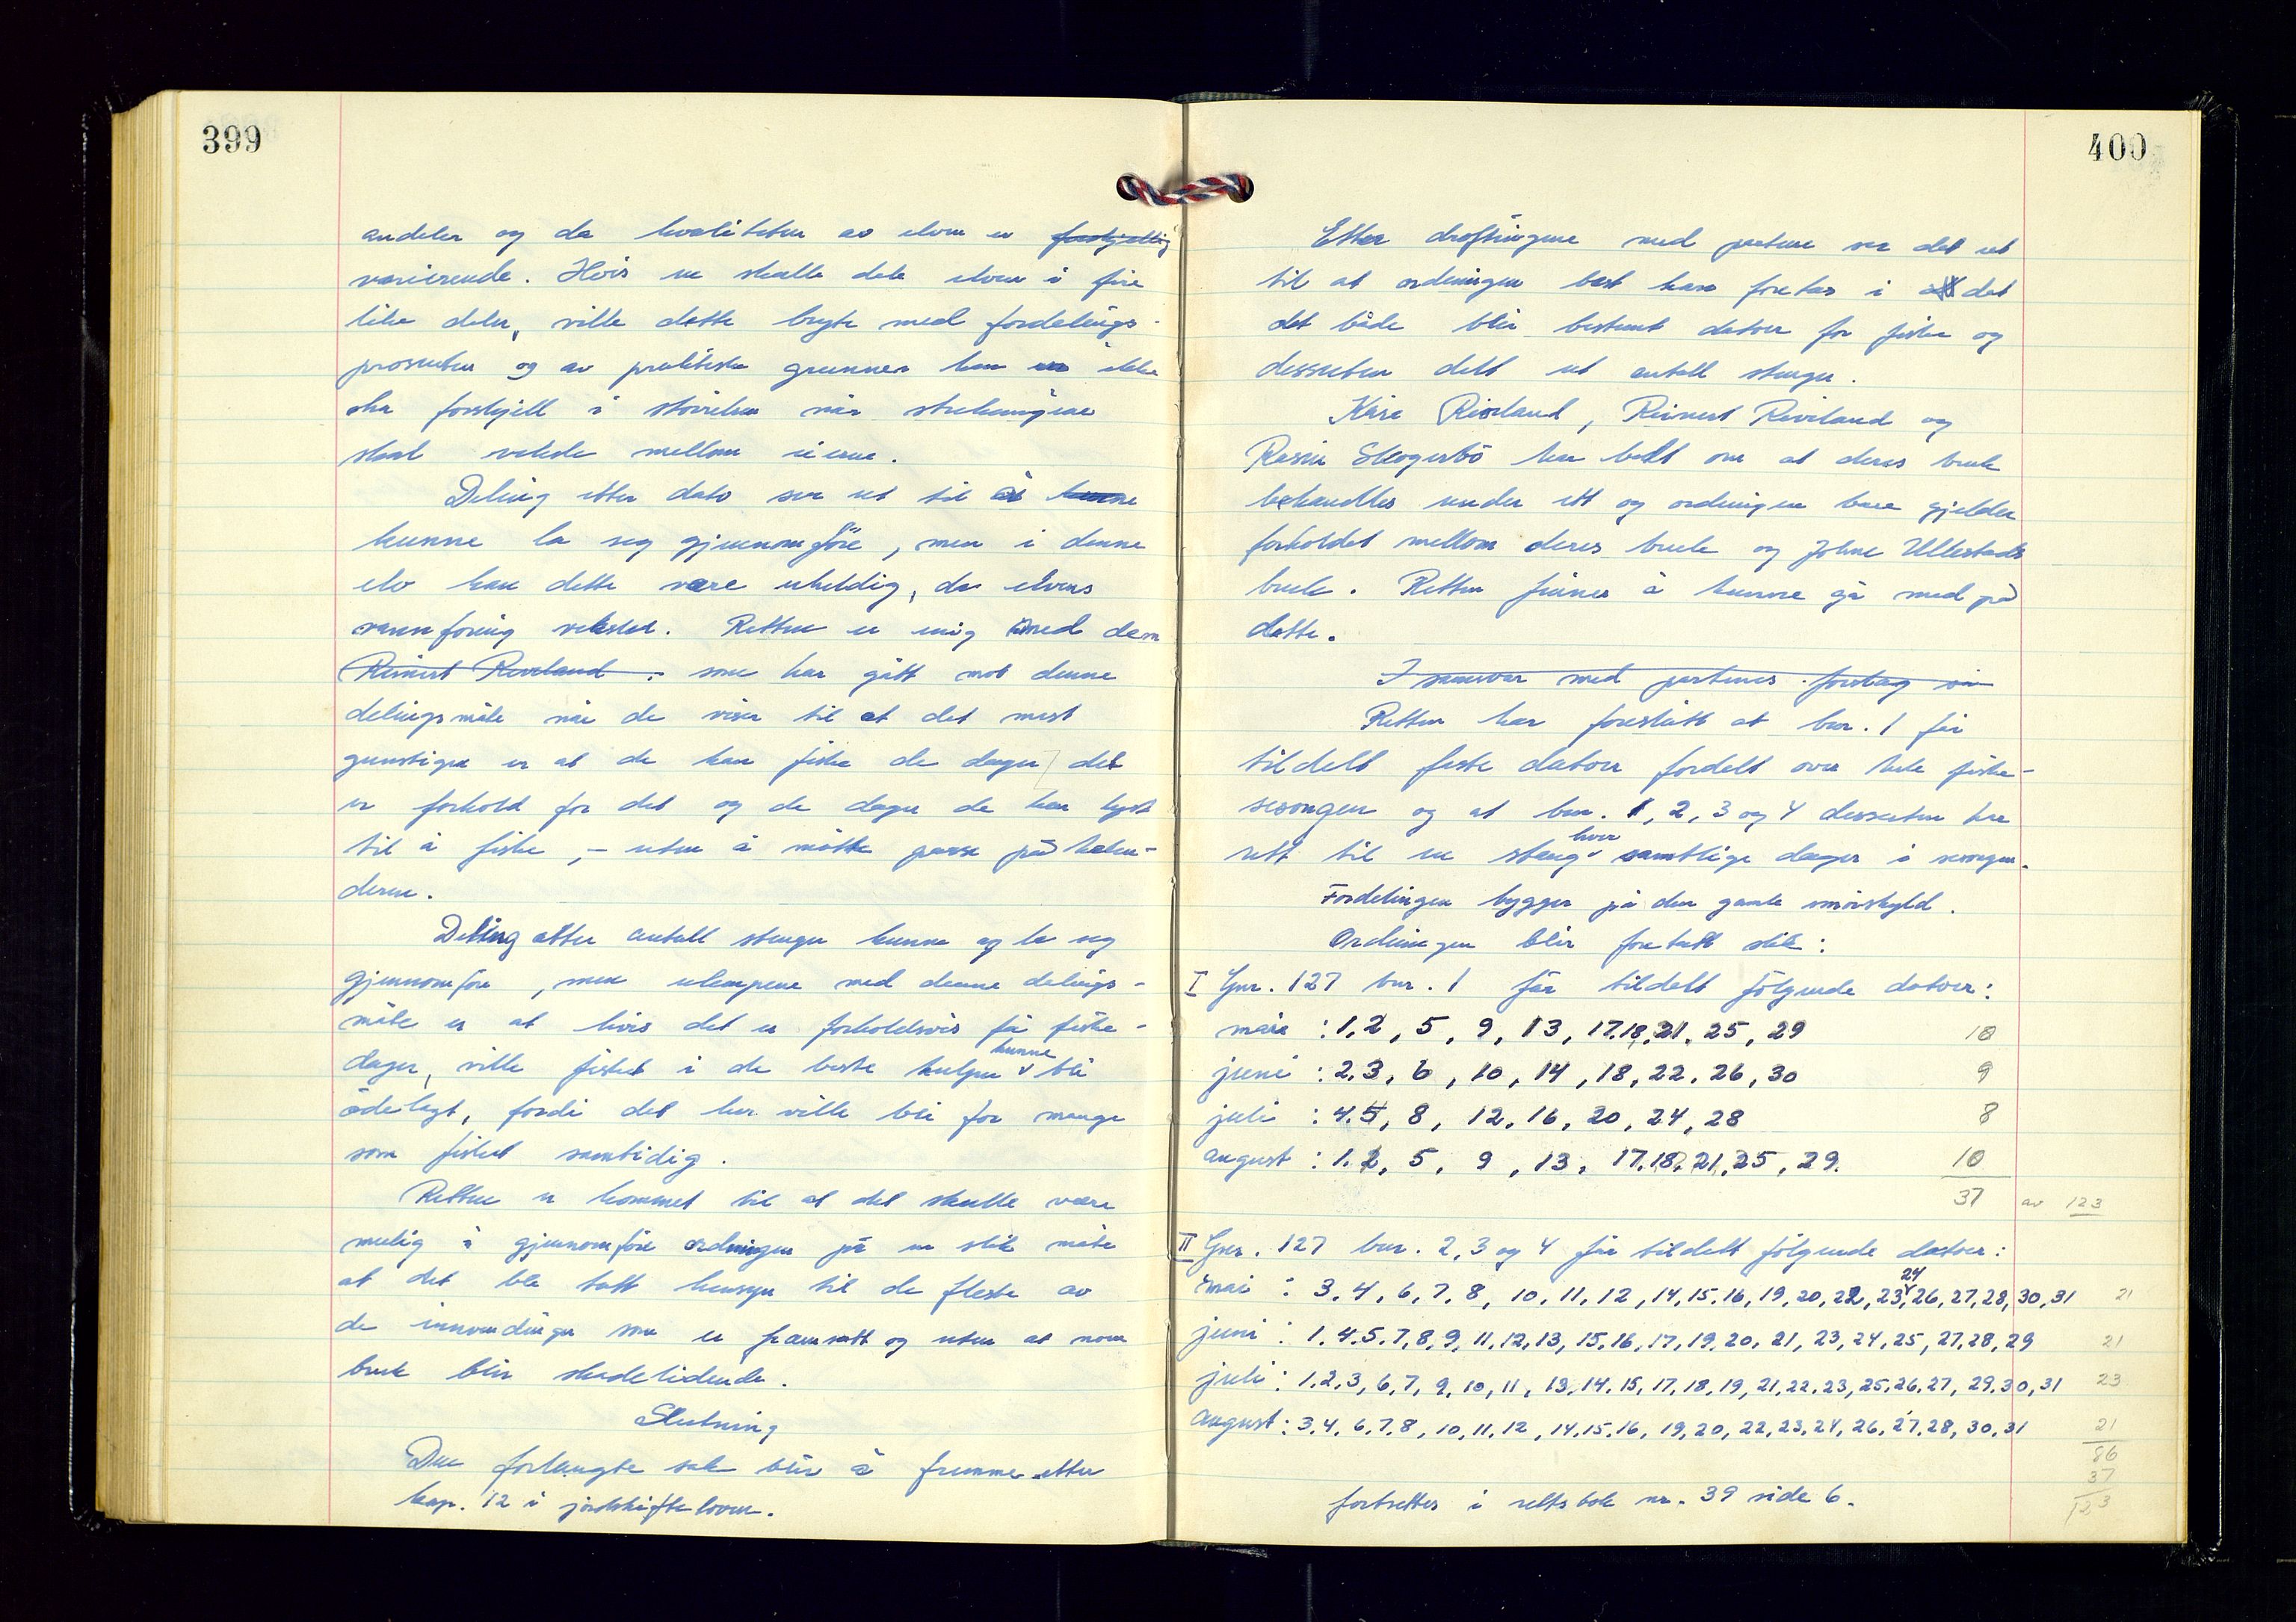 399
andeler og da kvaliteten av elven er forskjellig
varierende. Hvis en skulle dele elven i fire
like deler, ville dette bryte med fordelings-
prosenten og av praktiske grunner kan en ikke
ha forskjell i störrelsen når strekningene
skal veksle mellom eierne.
Deling etter dato ser ut til å kunne
kunne la seg gjennomföre, men i denne
elv kan dette være uheldig, da elvens
vannföring veksler. Retten er enig med dem
Reinert Roveland. som har gått mot denne
delingsmåte når de viser til at det mest
gunstige er at de kan fiske de dager det
er forhold for det og de dager de har lyst
til å fiske, - uten å måtte passe på kalen-
deren.
Deling etter antall stenger kunne og la seg
gjennomföre, men ulempene med denne delings-
måte er at hvis det er forholdsvis få fiske-
dager, ville fisket i de beste hulper kunne bli
ödelagt, fordi det her ville bli for mange
som fisket samtidig.
Retten er kommet til at det skulle være
mulig å gjennomföre ordningen på en slik måte
at det ble tatt hensyn til de fleste av
de innvendinger som er framsatt og uten at noen
bruk blir skadelidende.
Slutning
Den forlangte sak blir å fremme etter
kap. 12 i jordskifteloven.
400
Etter dröftingene med partene ser det ut
til at ordningen best kan foretas i at det
det både blir bestemt datoer for fiske og
dessuten delt ut antall stenger.
Kåre Roveland, Reinert Roveland og
Rasin Skogerbö har bedt om at deres bruk
behandles under ett og ordningen bare gjelder
forholdet mellom deres bruk og Johne Ullestads
bruk. Retten finner å kunne gå med på
dette.
I samsvar med partenes forslag vil
Retten har foreslått at bnr. 1 får
tildelt faste datoer fordelt over hele fiske-
sesongen og at bnr. 1, 2, 3 og 4 dessuten har
rett til en stang hver samtlige dager i sesongen.
Fordelingen bygger på den gamle småskyld.
Ordningen blir foretatt slik:
I Gnr. 127 bnr. 1 får tildelt fölgende datoer:
mai : 1, 2, 5, 9, 13, 17. 18, 21, 25, 29 10
juni : 2. 3, 6, 10, 14, 18, 22, 26, 30 9
juli : 4. 5, 8, 12, 16, 20, 24, 28 8
august : 1. 2, 5, 9, 13, 17. 18, 21, 25, 29. 10
37 av 123
II Gnr. 127 bnr. 2, 3 og 4 får tildelt fölgende datoer:
mai : 3, 4, 6, 7, 8, 10, 11, 12, 14, 15. 16, 19, 20, 22, 23, 24 26, 27, 28, 30, 31 21
juni : 1, 4. 5. 7, 8, 9, 11, 12, 13, 15, 16, 17, 19, 20, 21, 23, 24, 25, 27, 28, 29 21
juli : 1, 2, 3, 6, 7, 9, 10, 11, 13, 14, 15, 17, 18, 19, 21, 22. 23, 25, 26, 27, 29, 30, 31 23
august : 3. 4, 6, 7. 8, 10, 11, 12, 14, 15. 16, 19, 20, 22, 23, 24, 26, 27, 28, 30, 31 21
86
37
123
fortsettes i rettsbok nr. 39 side 6.